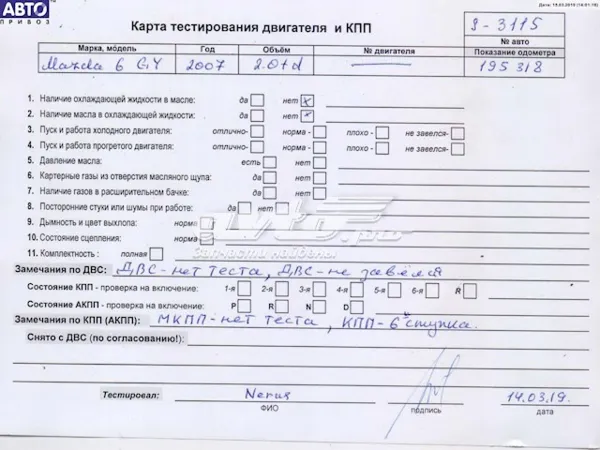 АВТО
ПРИВОЗ
Дата: 19.03.2019
Карта тестирования двигателя и КПП
9-3115
№ авто
Марка, модель Год Объём № двигателя Показание одометра
Mazda 6 GY 2007 2.0td 195318
1. Наличие охлаждающей жидкости в масле: да нет x
2. Наличие масла в охлаждающей жидкости: да нет x
3. Пуск и работа холодного двигателя: отлично- норма - плохо - не завелся-
4. Пуск и работа прогретого двигателя: отлично- норма - плохо - не завелся-
5. Давление масла: есть нет
6. Картерные газы из отверстия масляного щупа: да нет
7. Наличие газов в расширительном бачке: да нет
8. Посторонние стуки или шумы при работе: да нет
9. Дымность и цвет выхлопа: норма
10. Состояние сцепления: норма
11. Комплектность : полная
Запчасти найдены
Замечания по ДВС: ДВС-нет теста, ДВС-не завёлся
Состояние КПП - проверка на включение: 1-я 2-я 3-я 4-я 5-я 6-я R
Состояние АКПП - проверка на включение: P R N D
Замечания по КПП (АКПП): МКПП-нет теста, КПП-6 ступка.
Снято с ДВС (по согласованию!):
Тестировал: 14.03.19.
ФИО подпись дата